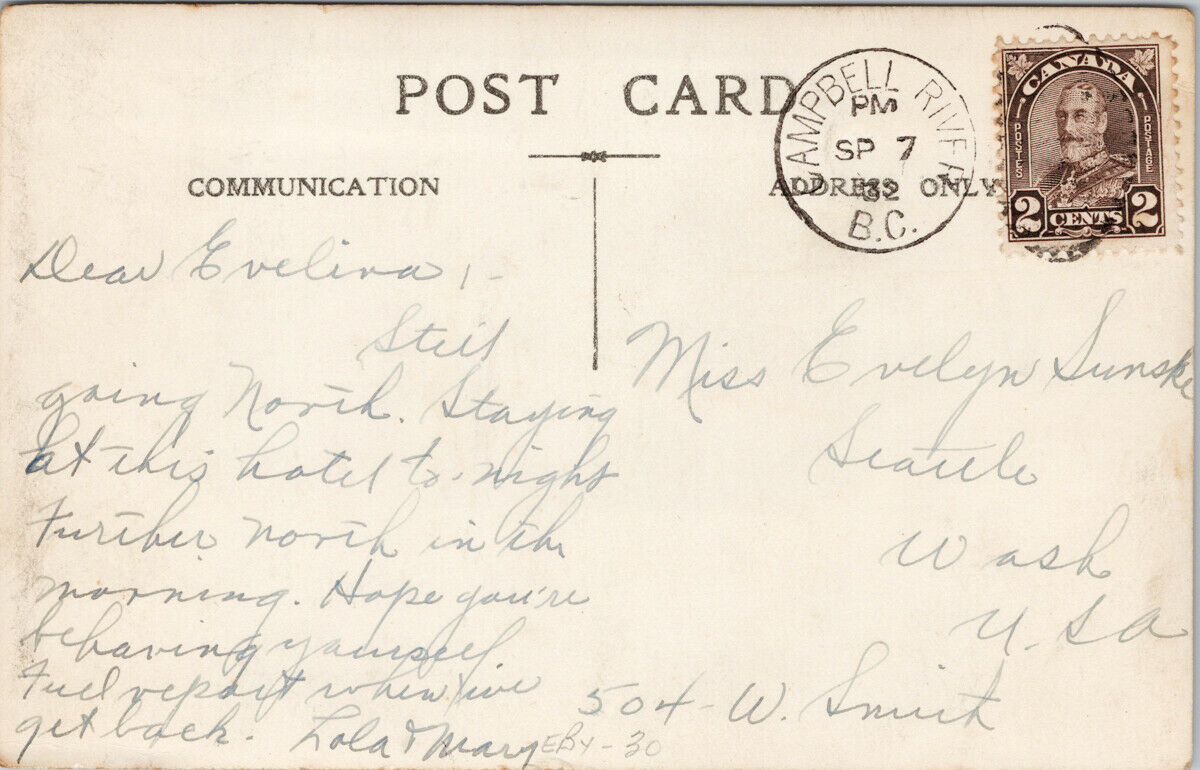 POST CARD
COMMUNICATION
ADDRESS ONLY
CAMPBELL RIVER
PM
SP 7
32
B.C.
CANADA
POSTES
POSTAGE
2 CENTS 2
Dear Evelina,-
Still
going North. Staying
at this hotel to-night
Further north in the
morning. Hope you're
behaving yourself.
Full report when we
get back. Lola & Mary
Miss Evelyn Sunske
Seattle
Wash
U.SA
504 - W. Smith
EBY-30